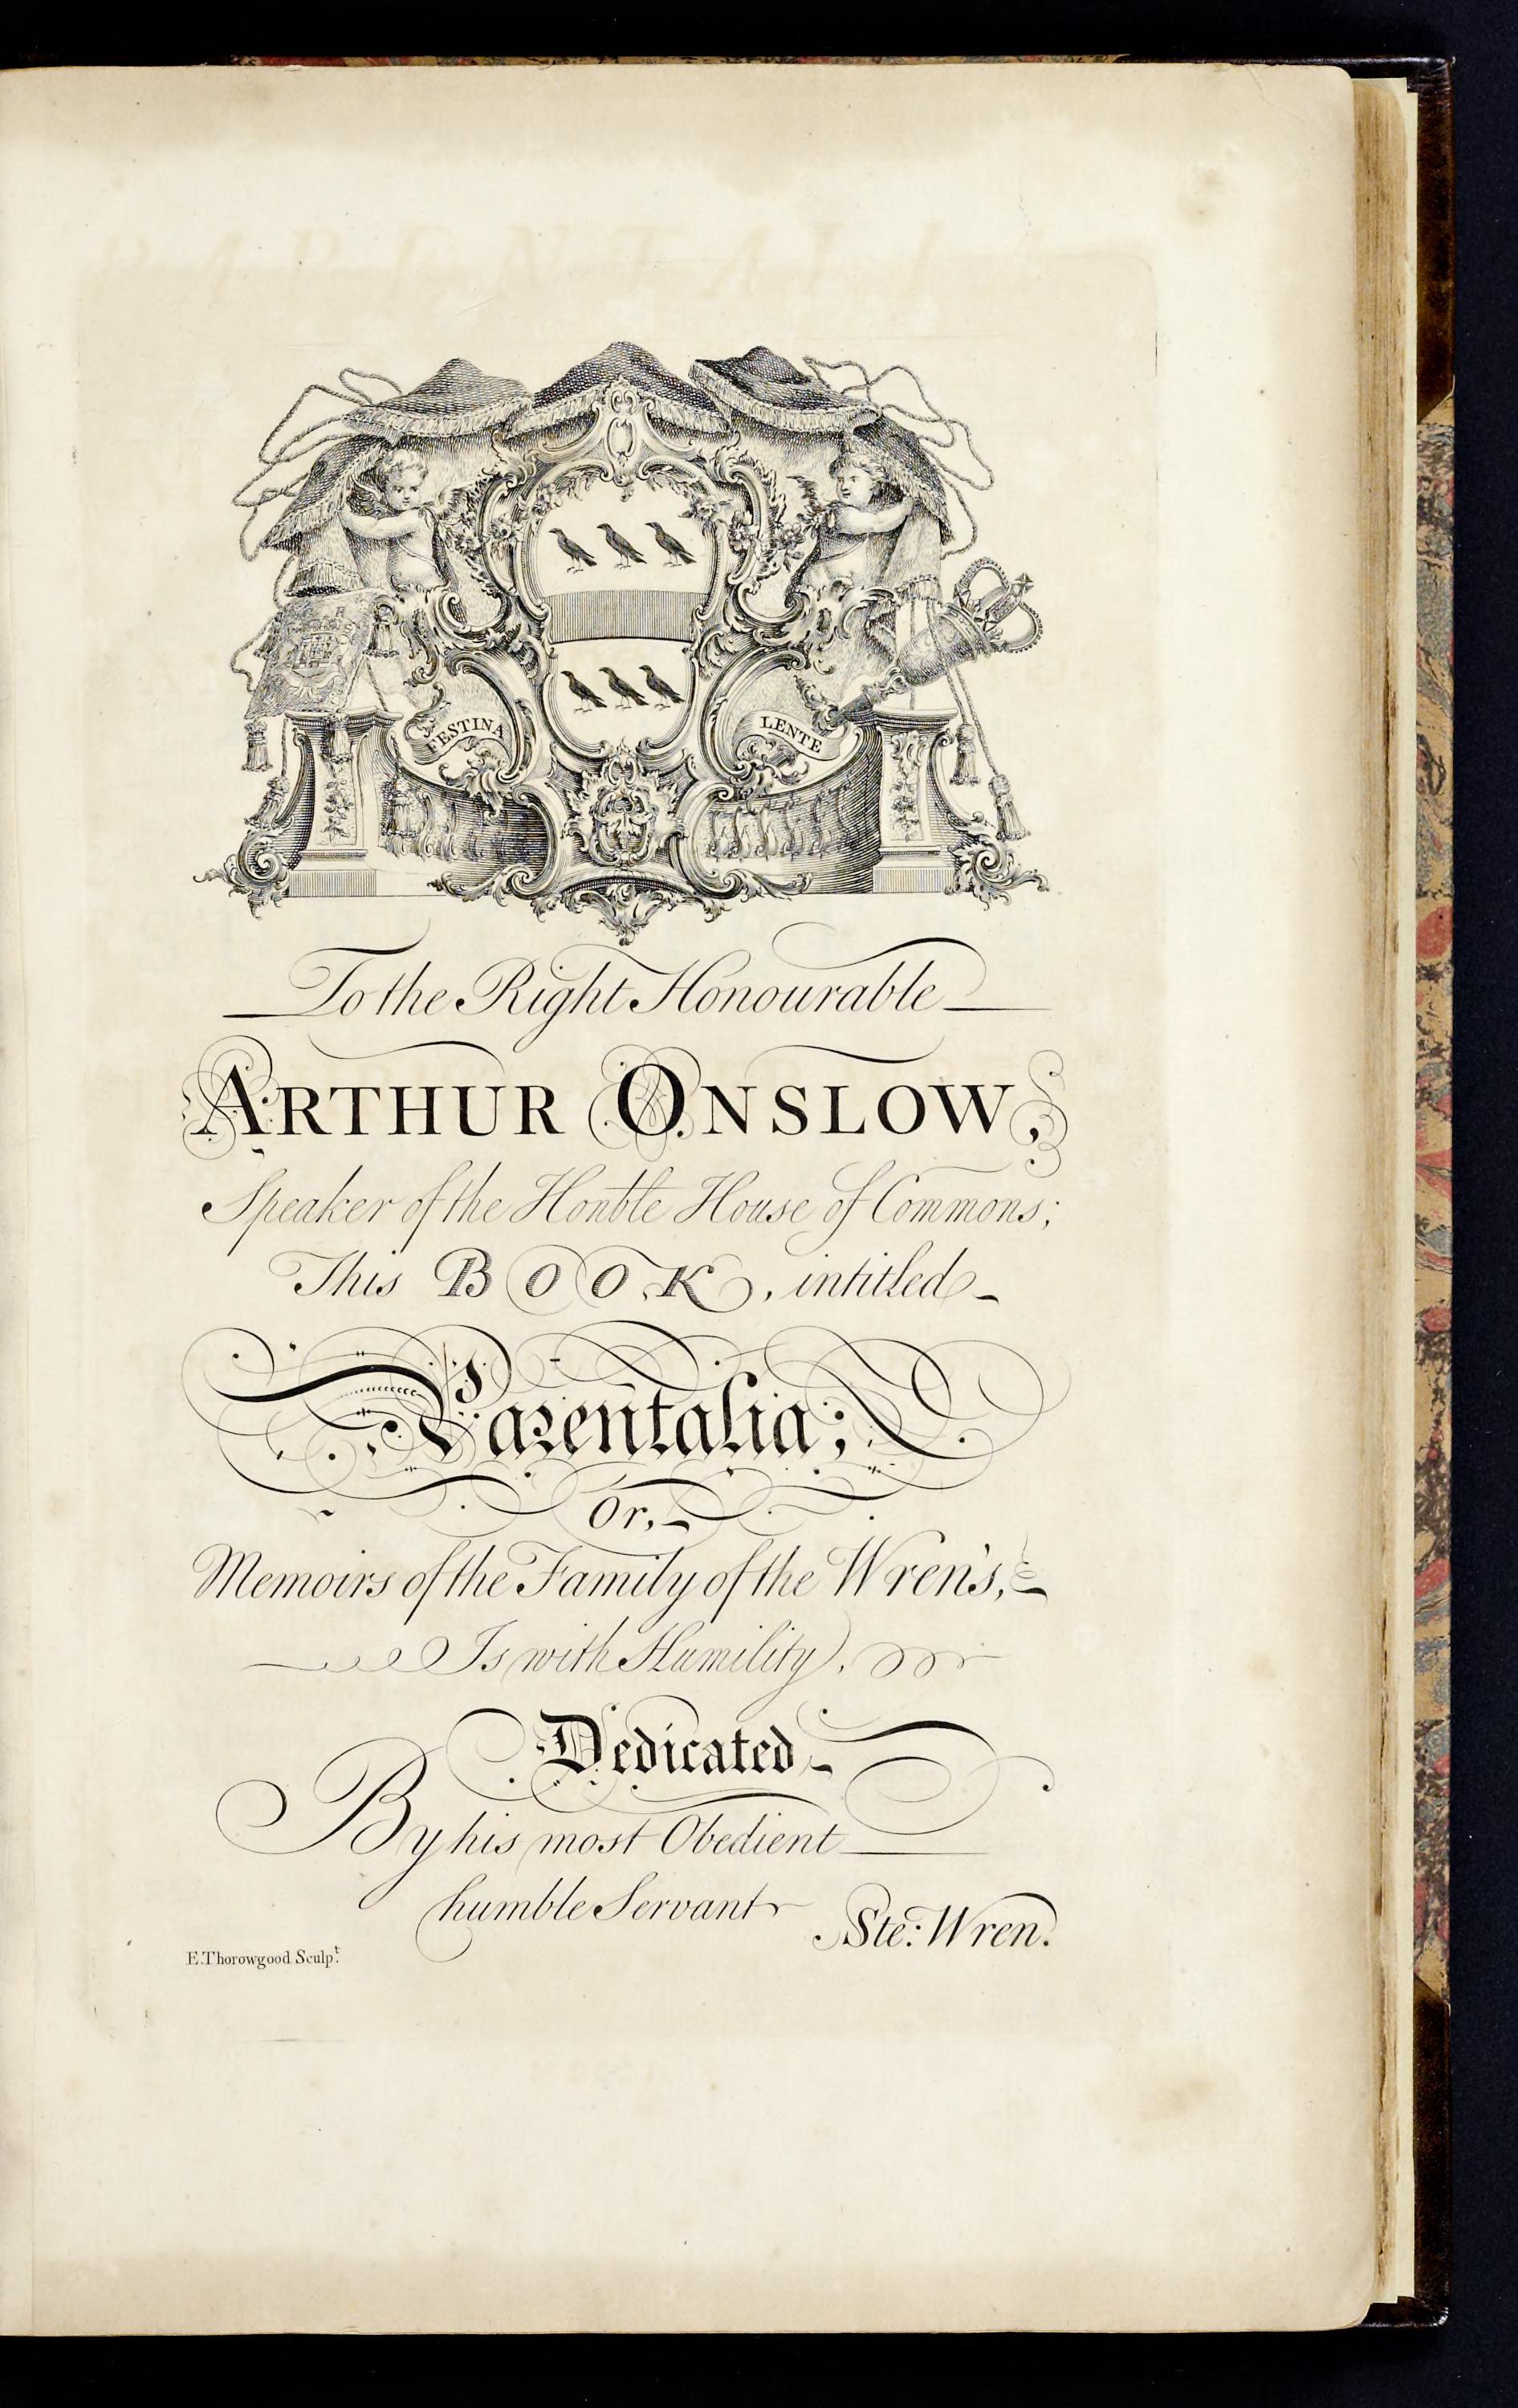 FESTINA LENTE
To the Right Honourable
ARTHUR ONSLOW,
Speaker of the Honble House of Commons;
This BOOK, intitled
Parentalia;
Or,
Memoirs of the Family of the Wren's,
Is with Humility,
Dedicated
By his most Obedient
humble Servant
Ste: Wren.
E. Thorowgood Sculpt.